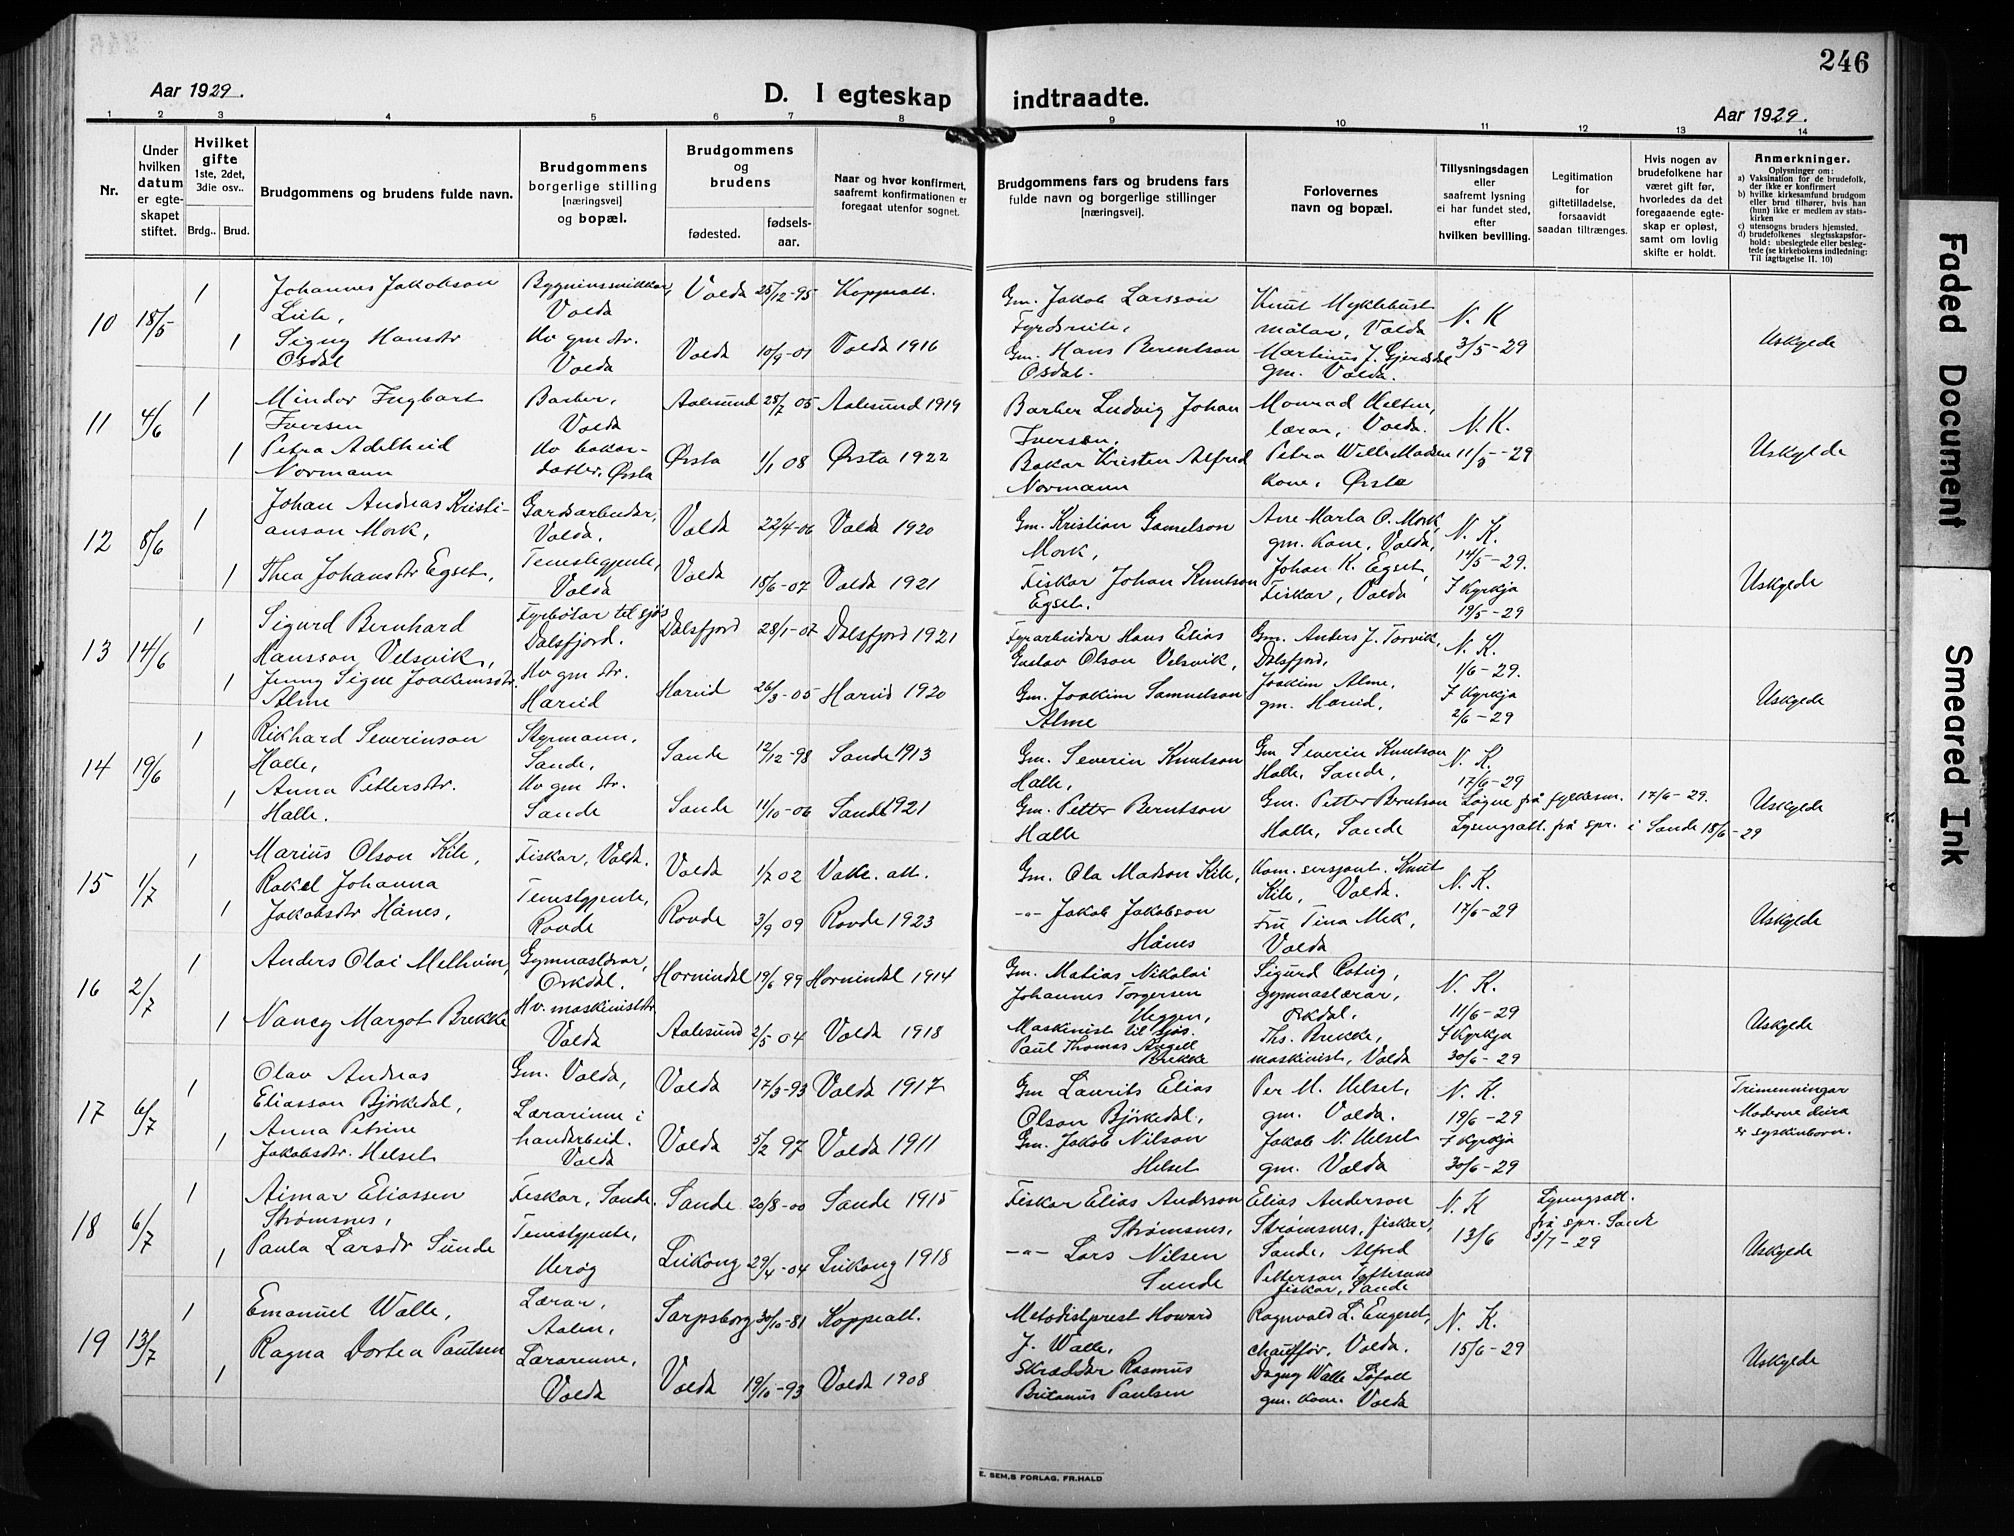 246
Aar 1929.
D. I egteskap indtraadte.
Aar 1929.
1 2 3 4 5 6 7 8 9 10 11 12 13 14
Nr.
Under hvilken datum er egteskapet stiftet.
Hvilket gifte 1ste, 2det, 3die osv..
Brdg.. Brud.
Brudgommens og brudens fulde navn.
Brudgommens borgerlige stilling [næringsvei] og bopæl.
Brudgommens og brudens
fødested.
fødsels-aar.
Naar og hvor konfirmert, saafremt konfirmationen er foregaat utenfor sognet.
Brudgommens fars og brudens fars fulde navn og borgerlige stillinger [næringsvei].
Forlovernes navn og bopæl.
Tillysningsdagen eller saafremt lysning ei har fundet sted, efter hvilken bevilling.
Legitimation for giftetilladelse, forsaavidt saadan tiltrænges.
Hvis nogen av brudefolkene har været gift før, hvorledes da det foregaaende egteskap er opløst, samt om lovlig skifte er holdt.
Anmerkninger.
Oplysninger om:
a) Vaksination for de brudefolk, der ikke er konfirmert
b) hvilke kirkesamfund brudgom eller brud tilhører, hvis han (hun) ikke er medlem av statskirken
c) utensogns bruders hjemsted.
d) brudefolkenes slegtsskapsforhold: ubeslegtede eller beslegtede (se kirkebokens indledning: Til Iagttagelse II. 10)
10 18/5 1 Johannes Jakobson Volda 25/12-95 Koppeatt.
Gm. Jakob Larsson
Knut Myklebust målar, Volda
N. K 3/5-29
1 Signy Hansdtr Osdal
Hv gm dtr. Volda
Volda 10/9-01 Volda 1916
Gm. Hans Berentson Osdal.
gm. Volda.
Uskylde
11 4/6 1 Mindor Ingbart Iversen
Barber, Volda
Aalesund 28/7 05 Aalesund 1919
Barber Ludvig Johan Iversen.
lærar, Volda.
N. K. 11/5-29
1 Petra Adelheid Normann
Hv bakar-datter, Ørsta
Ørsta 1/1 08 Ørsta 1922
Bakar Kristen Alfred Normann
Kone, Ørsta
Uskylde
12 8/6 1 Johan Andreas Kristi-anson Mork,
Gardsarbeidar, Volda.
Volda 22/4-06 Volda 1920
Gm. Kristian Gamelson Mork,
Ane Marta O. Mork, gm. Kone, Volda,
N. K. 14/5-29.
1 Thea Johansdtr Egset,
Tenestegjente, Volda
Volda 18/6-07 Volda 1921
Fiskar Johan Knutson Egset.
Johan K. Egset, Fiskar, Volda
I Kyrkja 19/5-29
Uskylde
13 14/6 1 Sigurd Bernhard Hansson Velsvik,
Fyrbøtar til sjøs Dalsfjord.
Dalsfjord 28/1-07 Dalsfjord 1921
Fyrarbeidar Hans Elias Gustav Olson Velsvik,
Gm. Anders J. Torvik, Dalsfjord,
N. K. 1/6-29.
1 Jenny Signe Joakimsdtr. Alme
Hv gm dtr. Hareid
Hareid 26/3-05 Hareid 1920
Gm. Joakim Samuelson Alme
Joakim Alme, gm. Hareid,
I Kyrkja 2/6-29
Uskylde
14 19/6 1 Rikhard Severinson Halle,
Styrmann, Sande,
Sande 12/12-98 Sande 1913
Gm. Severin Knutson Halle,
Gm Severin Knutson Halle, Sande,
N. K. 17/6-29
1 Anna Pettersdtr. Halle.
Hv gm dtr. Sande
Sande 11/10-06 Sande 1921
Gm. Petter Berntson Halle
Gm. Petter Berntson Halle, Sande
Løyve frå fylkesm. 17/6-29.
Lysingsatt. frå spr. i Sande 18/6-29
Uskylde
15 1/7 1 Marius Olson Kile,
Fiskar, Volda.
Volda 1/7 02 Vakc. att.
Gm. Ola Madson Kile,
Kom. sersjant. Knut Kile, Volda.
N. K. 17/5-29
1 Rakel Johanna Jakobsdtr Hånes,
Tenestgjente, Rovde
Rovde 3/9 09 Rovde 1923
-"- Jakob Jakobson Hånes
Fru Tina Mek, Volda
Uskylde
16 2/7 1 Anders Olai Melheim,
Gymnaslærar, Orkdal.
Hornindal 19/6 99 Hornindal 1914
Gm. Matias Nikolai Johannes Torgersen Heggen,
gymnaslærar, Orkdal.
N. K. 11/6-29
1 Nancy Margot Brekke
Hv. maskinistdtr Volda
Aalesund 2/5 04 Volda 1918
Maskinist til sjøs. Paul Thomas Angell Brekke
Ths. Brekke, maskinist, Volda
I Kyrkja 30/6-29
Uskylde
17 6/7 1 Olav Andreas Eliasson Bjørkedal,
Gm. Volda,
Volda 17/3-93 Volda 1917
Gm Laurits Elias Olson Bjørkedal,
Per M. Helset, gm. Volda.
N. K. 19/6-29
1 Anna Petrine Jakobsdtr. Helset
Lærarinne i handarbeid. Volda
Volda 5/2 97 Volda 1911
Gm. Jakob Nilson Helset
Jakob N. Helset gm. Volda
I Kyrkja 30/6-29
Trimenningar Mødrene deira er syskinborn.
18 6/7 1 Aimar Eliassen Strømsnes,
Fiskar, Sande.
Sande 20/8-00 Sande 1915
Fiskar Elias Anderson Strømsnes,
Elias Anderson Strømsnes, fiskar, Sande,
N. K 13/6
Lysingsatt. frå spr. Sande 3/7-29
1 Paula Larsdtr Sunde
Tenestgjente, Herøy
Leikong 29/4-04 Leikong 1918
-"- Lars Nilsen Sunde
Alfred Petterson Toftesund fiskar, Sande
Uskylde
19 13/7 1 Emanuel Walle,
Lærar, Aalen,
Sarpsborg 30/10-81 Koppeatt.
Metodistprest Howard J. Walle,
Ragnvald L. Engeset, chauffør, Volda.
N. K. 15/6-29
1 Ragna Dortea Paulsen
Lærarinne, Volda
Volda 19/10-93 Volda 1908
Skræddar Rasmus Britanus Paulsen
Dagny Walle gm. kone. Volda
Uskylde
E. SEM.S FORLAG, FR.HALD
Faded Document
Smeared Ink